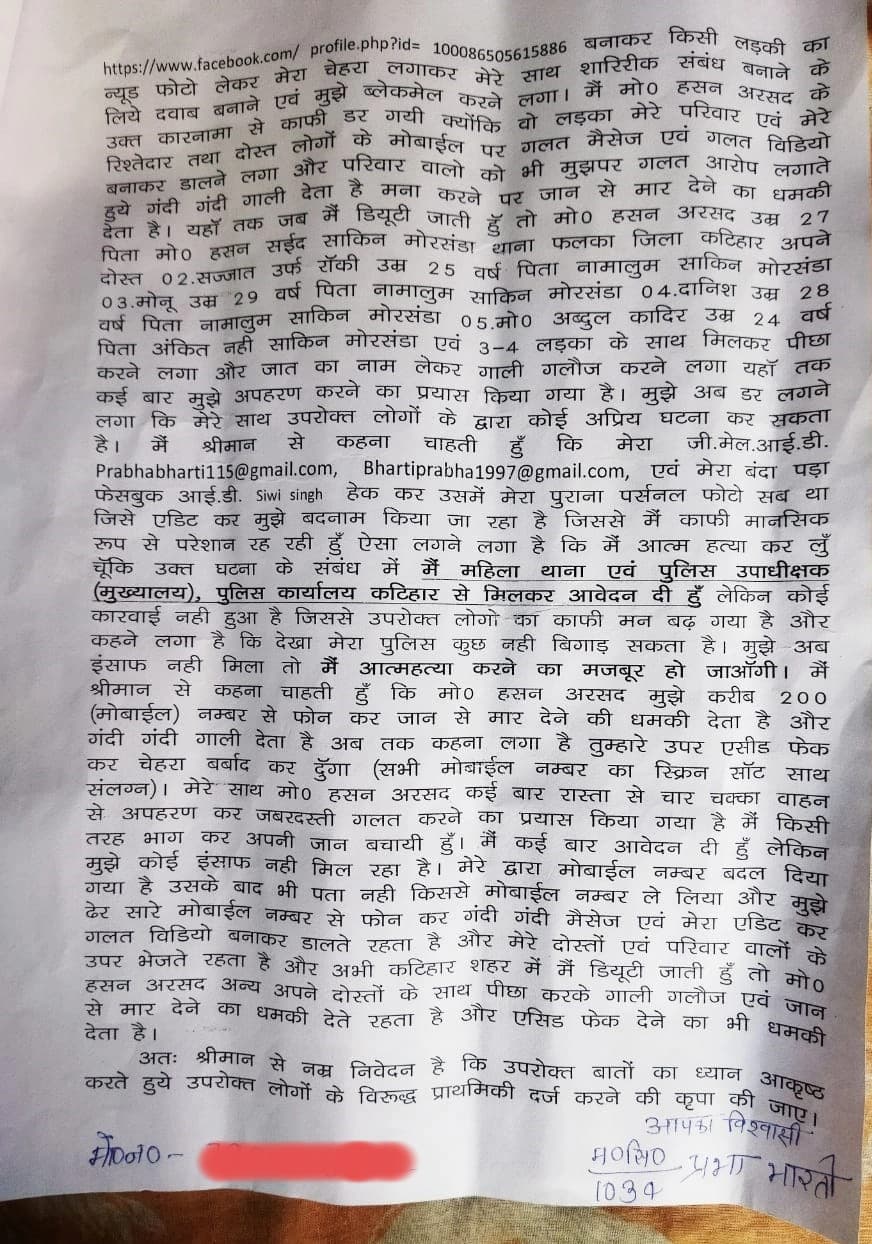 https://www.facebook.com/ profile.php?id= 100086505615886 बनाकर किसी लड़की का
न्यूड फोटो लेकर मेरा चेहरा लगाकर मेरे साथ शारिरीक संबंध बनाने के
लिये दवाब बनाने एवं मुझे ब्लेकमेल करने लगा। मैं मो0 हसन अरसद के
उक्त कारनामा से काफी डर गयी क्योंकि वो लड़का मेरे परिवार एवं मेरे
रिश्तेदार तथा दोस्त लोगों के मोबाईल पर गलत मैसेज एवं गलत विडियो
बनाकर डालने लगा और परिवार वालो को भी मुझपर गलत आरोप लगाते
हुये गंदी गंदी गाली देता है मना करने पर जान से मार देने का धमकी
देता है। यहाँ तक जब मैं डियूटी जाती हूँ तो मो0 हसन अरसद उम्र 27
पिता मो0 हसन सईद साकिन मोरसंडा थाना फलका जिला कटिहार अपने
दोस्त 02.सज्जात उर्फ रॉकी उम्र 25 वर्ष पिता नामालुम साकिन मोरसंडा
03.मोनू उम्र 29 वर्ष पिता नामालुम साकिन मोरसंडा 04.दानिश उम्र 28
वर्ष पिता नामालुम साकिन मोरसंडा 05.मो0 अब्दुल कादिर उम्र 24 वर्ष
पिता अंकित नही साकिन मोरसंडा एवं 3-4 लड़का के साथ मिलकर पीछा
करने लगा और जात का नाम लेकर गाली गलौज करने लगा यहाँ तक
कई बार मुझे अपहरण करने का प्रयास किया गया है। मुझे अब डर लगने
लगा कि मेरे साथ उपरोक्त लोगों के द्वारा कोई अप्रिय घटना कर सकता
है। मैं श्रीमान से कहना चाहती हुँ कि मेरा जी.मेल.आई.डी.
Prabhabharti115@gmail.com, Bhartiprabha1997@gmail.com, एवं मेरा बंदा पड़ा
फेसबुक आई.डी. Siwi singh हेक कर उसमें मेरा पुराना पर्सनल फोटो सब था
जिसे एडिट कर मुझे बदनाम किया जा रहा है जिससे मैं काफी मानसिक
रूप से परेशान रह रही हुँ ऐसा लगने लगा है कि मैं आत्म हत्या कर लुँ
चूॅंकि उक्त घटना के संबंध में मैं महिला थाना एवं पुलिस उपाधीक्षक
(मुख्यालय), पुलिस कार्यालय कटिहार से मिलकर आवेदन दी हुँ लेकिन कोई
कारवाई नही हुआ है जिससे उपरोक्त लोगो का काफी मन बढ़ गया है और
कहने लगा है कि देखा मेरा पुलिस कुछ नही बिगाड़ सकता है। मुझे अब
इंसाफ नही मिला तो मैं आत्महत्या करने का मजबूर हो जाऑगी। मैं
श्रीमान से कहना चाहती हुँ कि मो0 हसन अरसद मुझे करीब 200
(मोबाईल) नम्बर से फोन कर जान से मार देने की धमकी देता है और
गंदी गंदी गाली देता है अब तक कहना लगा है तुम्हारे उपर एसीड फेक
कर चेहरा बर्बाद कर दुँगा (सभी मोबाईल नम्बर का स्क्रिन सॉट साथ
संलग्न)। मेरे साथ मो0 हसन अरसद कई बार रास्ता से चार चक्का वाहन
से अपहरण कर जबरदस्ती गलत करने का प्रयास किया गया है मैं किसी
तरह भाग कर अपनी जान बचायी हुँ। मैं कई बार आवेदन दी हुँ लेकिन
मुझे कोई इंसाफ नही मिल रहा है। मेरे द्वारा मोबाईल नम्बर बदल दिया
गया है उसके बाद भी पता नही किससे मोबाईल नम्बर ले लिया और मुझे
ढेर सारे मोबाईल नम्बर से फोन कर गंदी गंदी मैसेज एवं मेरा एडिट कर
गलत विडियो बनाकर डालते रहता है और मेरे दोस्तों एवं परिवार वालों के
उपर भेजते रहता है और अभी कटिहार शहर में मैं डियूटी जाती हुँ तो मो0
हसन अरसद अन्य अपने दोस्तों के साथ पीछा करके गाली गलौज एवं जान
से मार देने का धमकी देते रहता है और एसिड फेक देने का भी धमकी
देता है।
अतः श्रीमान से नम्र निवेदन है कि उपरोक्त बातों का ध्यान आकृष्ट
करते हुये उपरोक्त लोगों के विरूद्ध प्राथमिकी दर्ज करने की कृपा की जाए।
आपका विश्वासी
मो०न० -
म०सि० प्रभा भारती
1034